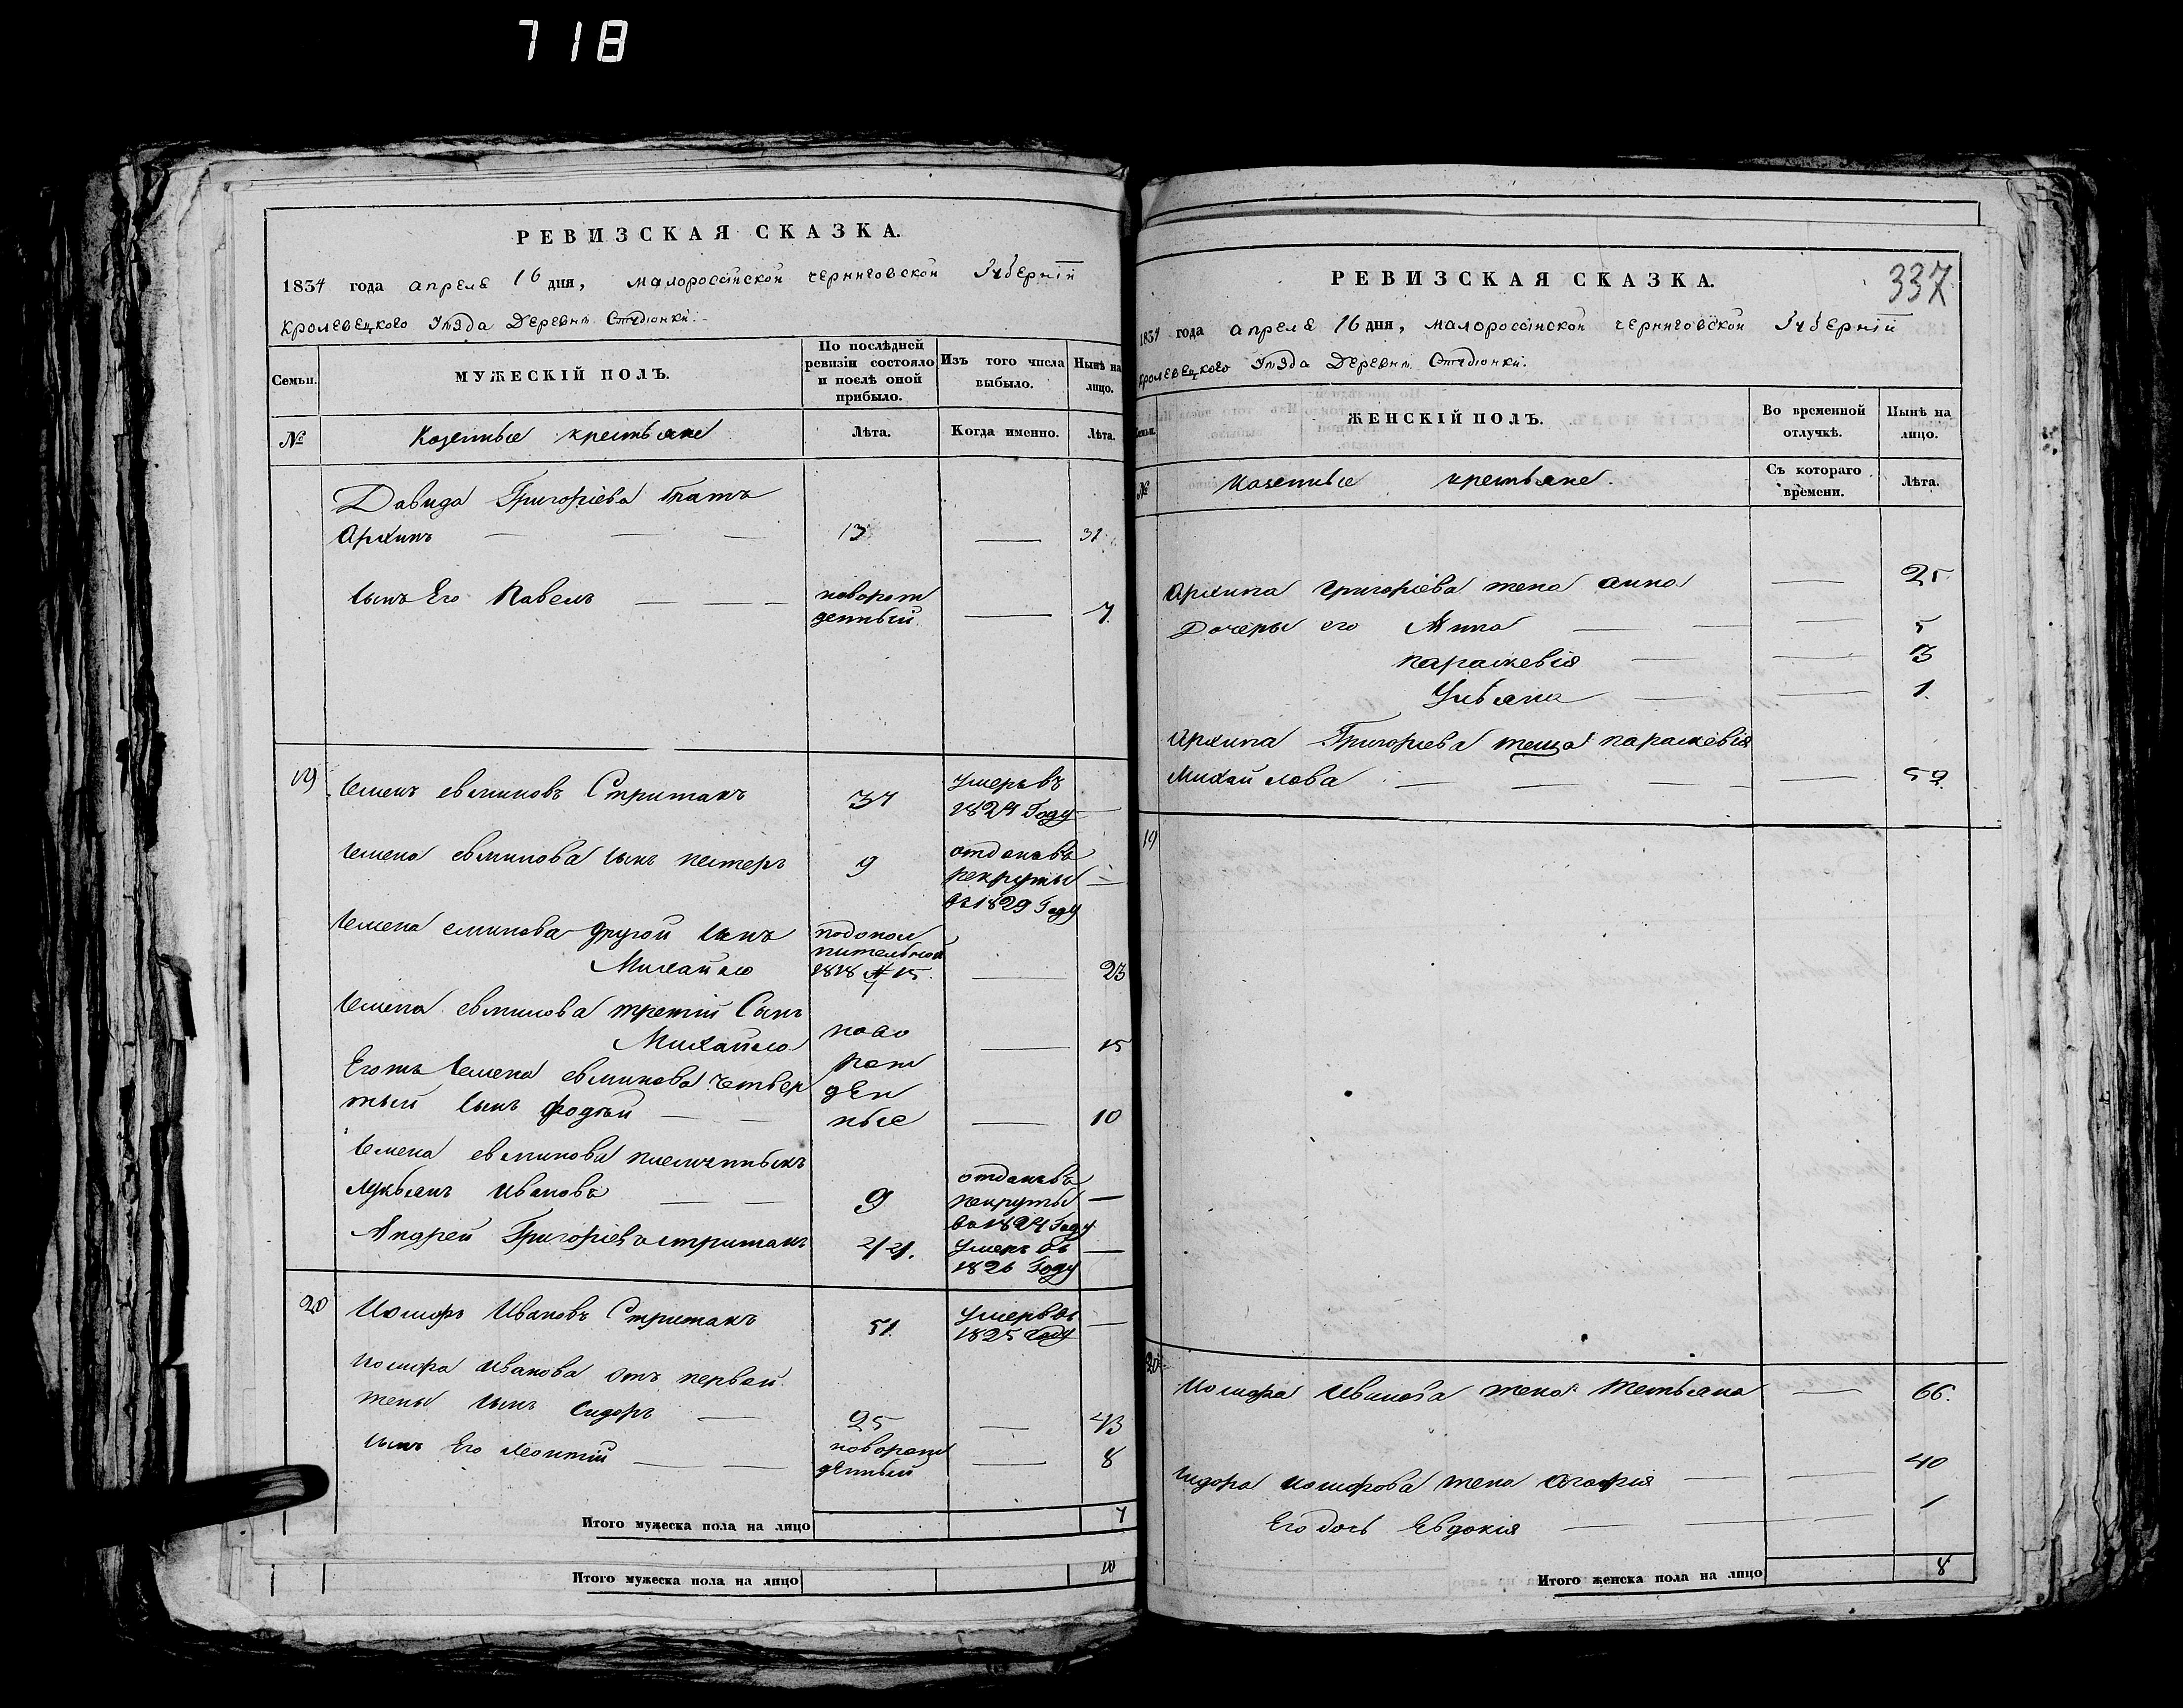 718
РЕВИЗСКАЯ СКАЗКА.
1834 года апреля 16 дня, малоросийской черниговской Губернiи
кролевецкого Уѣзда Деревнѣ Студіонки.
Семьи.
МУЖЕСКІЙ ПОЛЪ.
По послѣдней ревизіи состояло и послѣ оной прибыло.
Изъ того числа выбыло.
Нынѣ на лицо.
№
Казенные крестьяне
Лѣта.
Когда именно.
Лѣта.
Давида Григоріева братъ
Архипъ 13 — 31
сынъ Его Павелъ новорож
денный — 7.
19 Семенъ евминовъ Стрижакъ 37 умеръ въ
1824 Году —
Семена евминова сынъ нестеръ 9 отданъ въ
рекруты —
въ 1829 Году
Семена еминова другой сынъ подопол
нительной
Михайло 1818 № 15. — 23
Семена евминова третій Сынъ
Михайло ново — 15
Егожъ Семена евминова четвер рож
тый сынъ фодѣй ден
ные — 10
Семена евминова племянныкъ
лукьянъ Ивановъ 9 отданъ въ
рекруты —
въ 1824 Году
Андрей Григоріевъ стрижакъ 44. умеръ въ —
1826 Году
20 Иосифъ Ивановъ Стрижакъ 51. умеръ въ —
1825 Году
Иосифа Иванова отъ первой
жены сынъ сидоръ — 25 — 43
сынъ Его леонтій новорож
денный — 8
Итого мужеска пола на лицо 7
Итого мужеска пола на лицо 10
337
РЕВИЗСКАЯ СКАЗКА.
1834 года апреля 16 дня, малоросийской черниговской Губерніи
кролевецкого Уѣзда Деревнѣ Студіонки.
Семьи.
ЖЕНСКІЙ ПОЛЪ.
Во временной отлучкѣ.
Нынѣ на лицо.
№
казенные крестьяне.
Съ котораго времени.
Лѣта.
Архипа григоріева жена анна — 25.
Дочеры его Анна — 5
параскевія — 3
Ульяна — 1.
Архипа Григориева теща параскевія
Михайлова — 59.
19
20
Иосифа Иванова жена Татьяна — 66.
сидора иосифова жена Агафія — 40
Его дочь Евдокія — 1
Итого женска пола на лицо 8